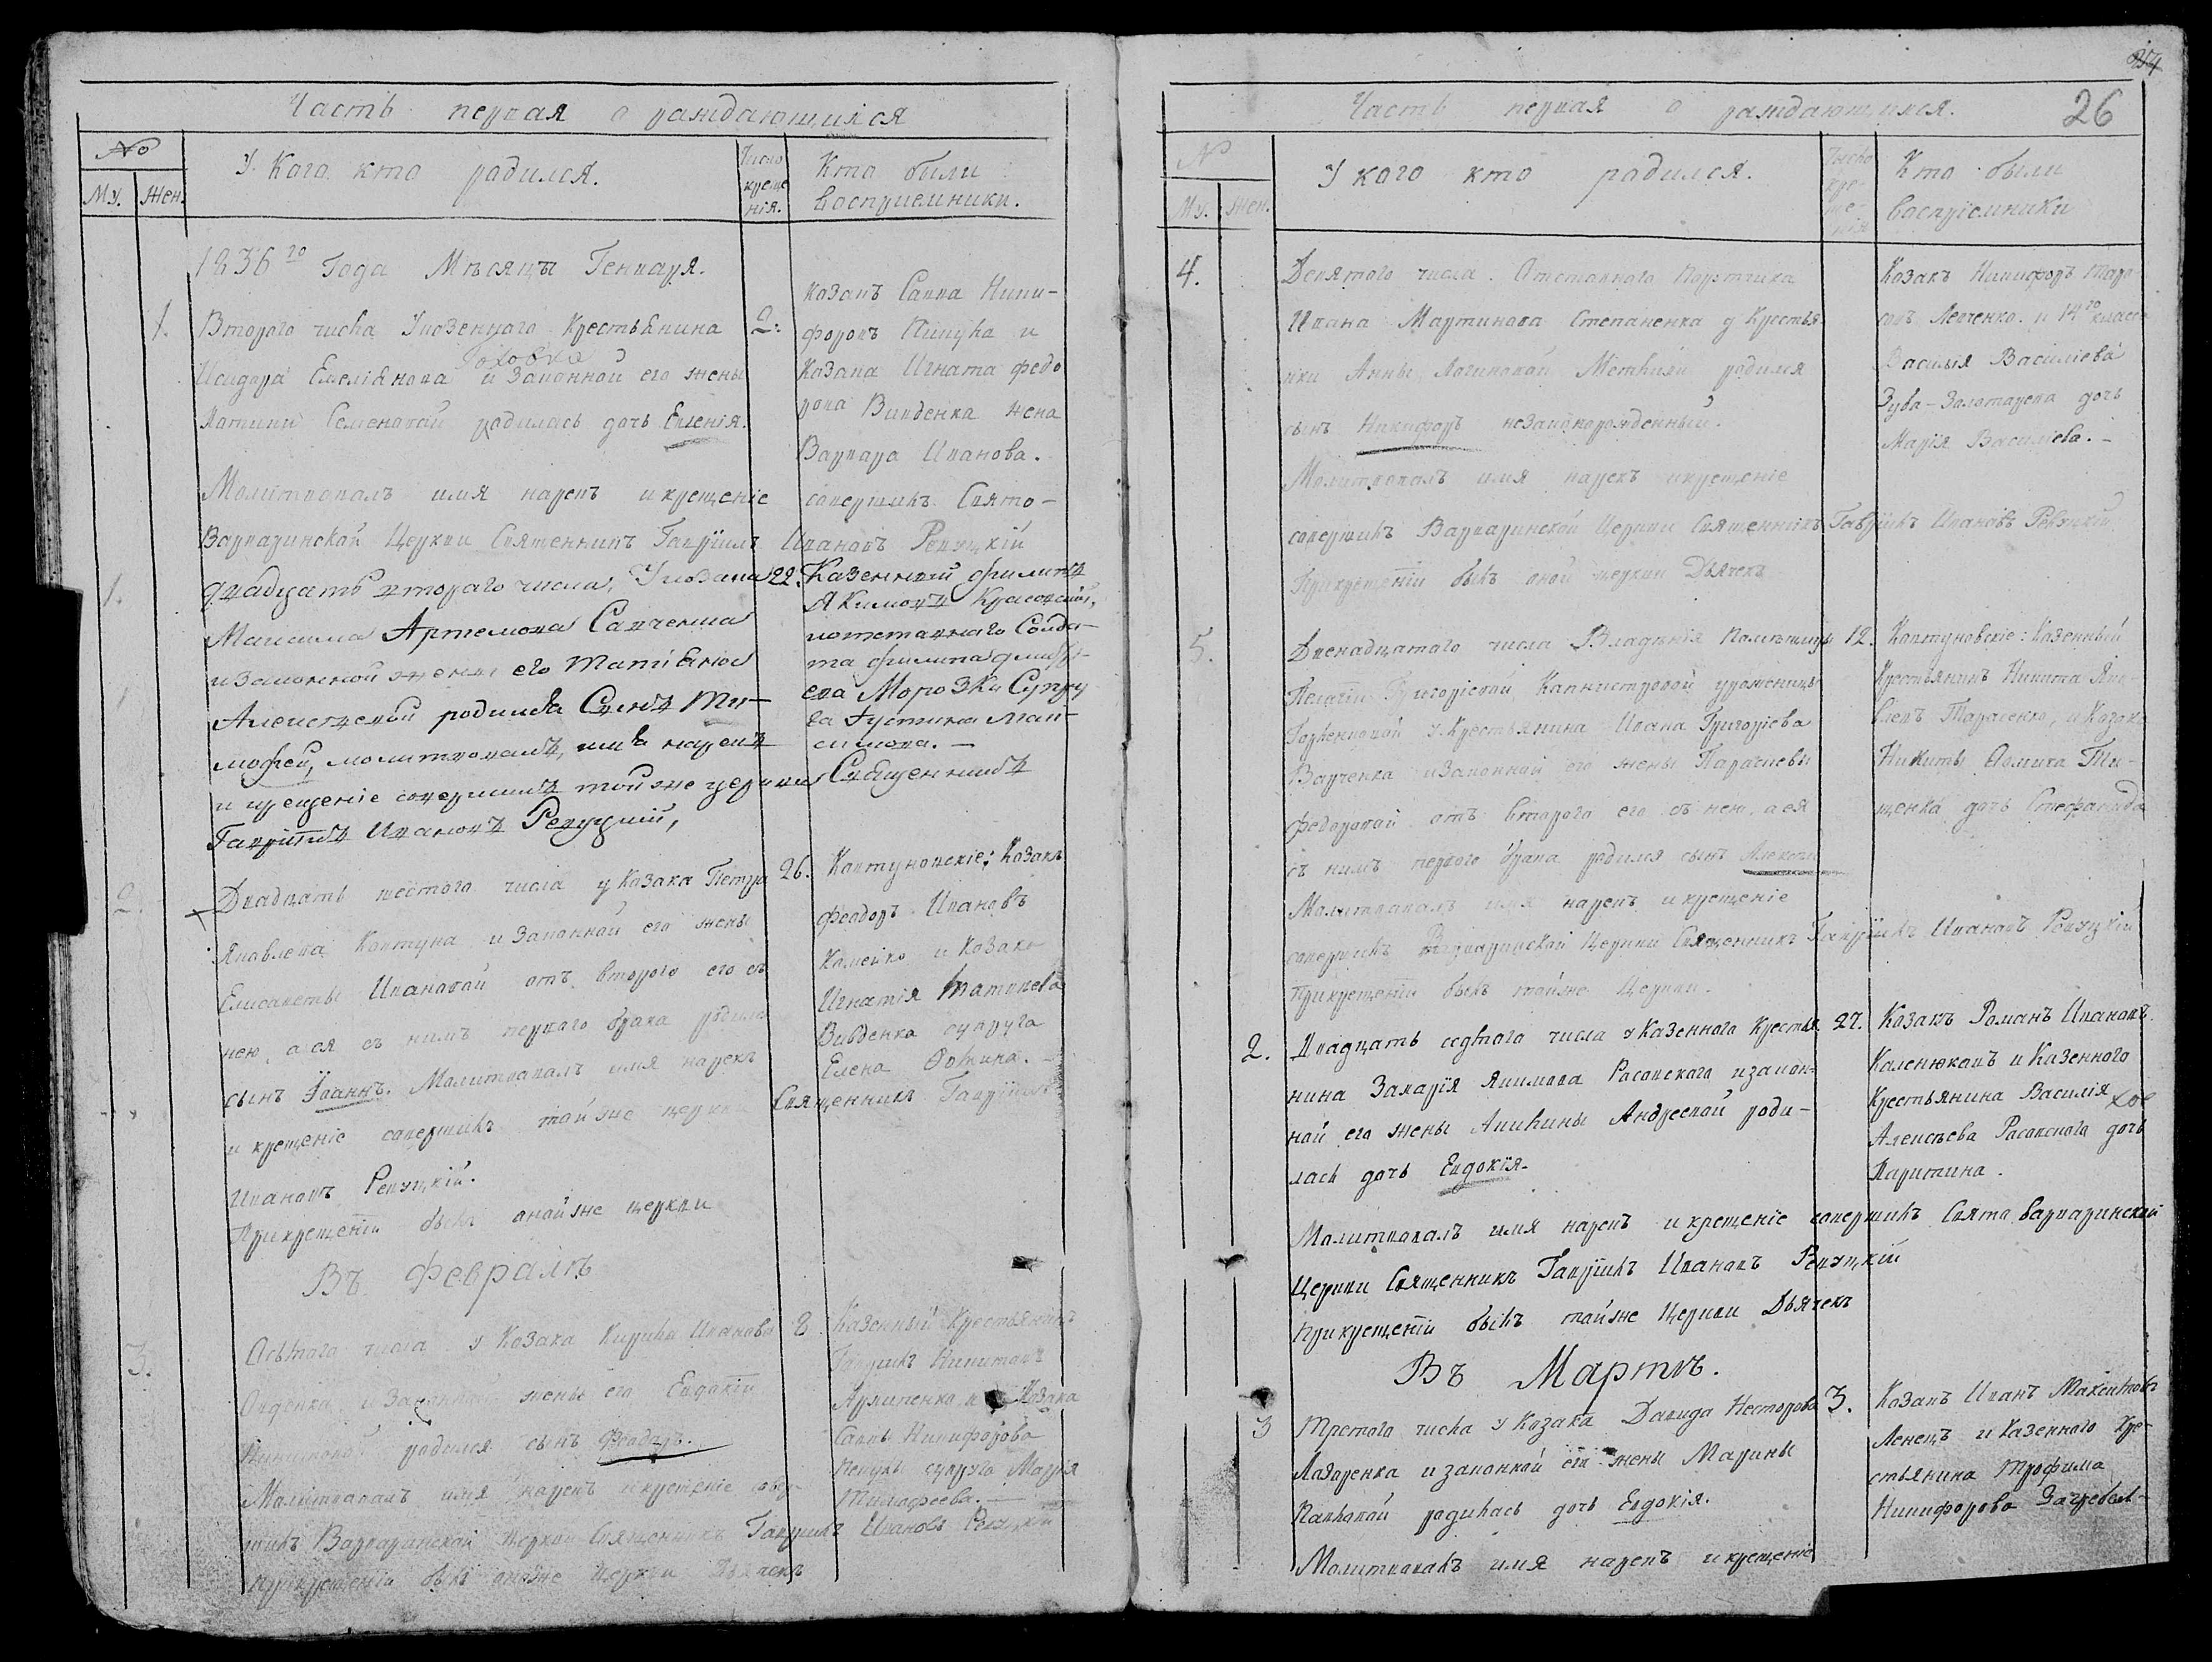 Часть первая о раждающихся
№
Му. Жен.
У Кого кто родился.
Число креще нія.
Кто были воспріемники.
1836го Года Мѣсяцъ Генваря.
1. Втораго числа У казеннаго Крестьянина 2.
Исидора Емеліянова и Законной его жены
Семеновой родилась дочь Евгенія.
Козакъ Савва Ники-
форовъ Пинчука и
Козака Игната Федо
рова Вивденка жена
Варвара Иванова.
Молитвовалъ имя нарекъ и крещеніе совершилъ Свято-
Варваринской Церкви Священникъ Гавріилъ Ивановъ Ревуцкій
1. двадцать втораго числа, У козака 22.
Максима Артемова Савченка
и законной жены его Татіяны
Алексѣевой родился Сынъ Ти-
мофей, молитвовалъ, имя нарекъ
и крещеніе совершилъ той же церкви Священникъ
Гавріилъ Ивановъ Ревуцкій,
Казенный Филипъ
Якимовъ Красовскій,
и отставнаго Солда-
та Филипа
ева Морозки Супру
га Іустина Мак-
симова.
2. Двадцать шестого числа у Козака Петра 26.
Яковлева Ковтуна и Законной его жены
Елисаветы Ивановой отъ второго его съ
нею, а ея съ нимъ перваго брака родился
сынъ Іоаннъ. Молитвовалъ имя нарекъ
и крещеніе совершилъ той же церкви Священникъ Гавріилъ
Ивановъ Ревуцкій.
При крещеніи былъ оной же церкви
Ковтуновскіе: Козакъ
Феодоръ Ивановъ
и Козака
Игнатія
Вивденка супруга
Елена Фомина.
Въ Февралѣ
3. Осьмого числа у Козака Кирила Иванова 8
Овденка и Законной жены его Евдокіи
Никитиной родился сынъ Феодоръ.
Молитвовалъ имя нарекъ и крещеніе совер-
шилъ Варваринской Церкви Священникъ Гавріилъ Ивановъ Ревуцкій
При крещеніи былъ оной же Церкви Дьячекъ
Казенный Крестьянинъ
Гавріилъ Никитовъ
Архипенко и Козака
Саввы Никифорова
супруга Марія
Тимофеева.
26
Часть первая о раждающихся.
№
Му. Жен.
У кого кто родился.
Число кре-ще-нія
Кто были воспріемники
4. Девятого числа. Отставного Портчика
Ивана Мартинова Степаненка у Крестья
нки Анны Логиновой родился
сынъ Никифоръ незаконорожденный.
Молитвовалъ имя нарекъ и крещеніе
совершилъ Варваринской Церкви Священникъ Гавріилъ Ивановъ Ревуцкій,
При крещеніи былъ оной церкви Дьячекъ
Козакъ Никифоръ Тара
совъ Левченко. и 14го класса
Василія Василіева
Зуба-Золотарева дочь
Марія Василіева.
5. Двенадцатого числа Владѣнія Помѣщицы 12.
Пелагіи Григоріевой Капнистровой уроженицы
у Крестьянина Ивана Григоріева
Варченка и Законной его жены Параскевы
Федоровой отъ второго его съ нею, а ея
съ нимъ первого брака родился сынъ Алексѣй
Молитвовалъ имя нарекъ и крещеніе
совершилъ Варваринской Церкви Священникъ Гавріилъ Ивановъ Ревуцкій
При крещеніи былъ той же Церкви.
Ковтуновскіе: Казенный
Крестьянинъ Никита Яко-
влевъ Тарасенко, и Козака
Никиты Фомича Ти-
щенка дочь Стефанида
2. Двадцать седмого числа у Казенного Крестья 27.
нина Захарія Якимова Расовского и закон-
ной его жены Акилины Андреевой роди-
лась дочь Евдокія.
Молитвовалъ имя нарекъ и крещеніе совершилъ Свято Варваринской
Церкви Священникъ Гавріилъ Ивановъ Ревуцкій
При крещеніи былъ той же Церкви Дьячекъ
Козакъ Романъ Ивановъ
Каленюковъ и Казенного
Крестьянина Василія
Алексѣева Расовского дочь
Харитина.
Въ Мартѣ.
3 Третого числа у Козака Давида Несторова 3.
Лазаренка и законной его жены Марины
Павловой родилась дочь Евдокія.
Молитвовалъ имя нарекъ и крещеніе
Козакъ Иванъ Максимовъ
Ленецъ и Казенного Кре-
стьянина Трофима
Никифорова Загребел-